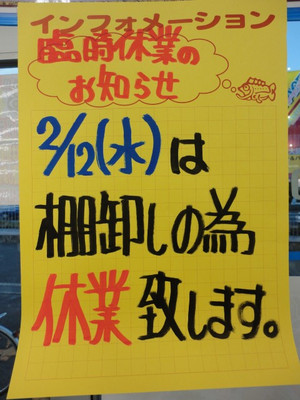 インフォメーション
臨時休業の
お知らせ
2/12(水)は
棚卸しの為
休業致します。